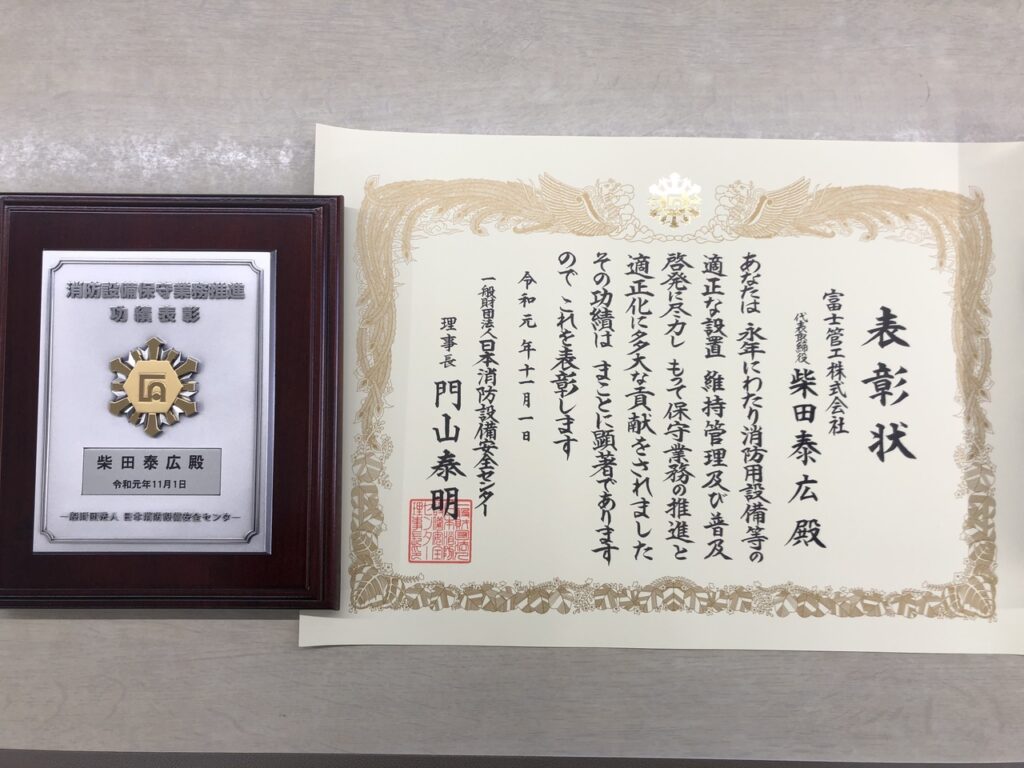 消防設備保守業務推進
功績表彰
柴田泰広殿
令和元年11月1日
一般財団法人 日本消防設備安全センター
表彰状
富士管工株式会社
代表取締役 柴田泰広 殿
あなたは 永年にわたり消防用設備等の
適正な設置 維持管理及び普及
啓発に尽力し もって保守業務の推進と
適正化に多大な貢献をされました
その功績は まことに顕著であります
ので これを表彰します
令和元年十一月一日
一般財団法人日本消防設備安全センター
理事長 門山泰明